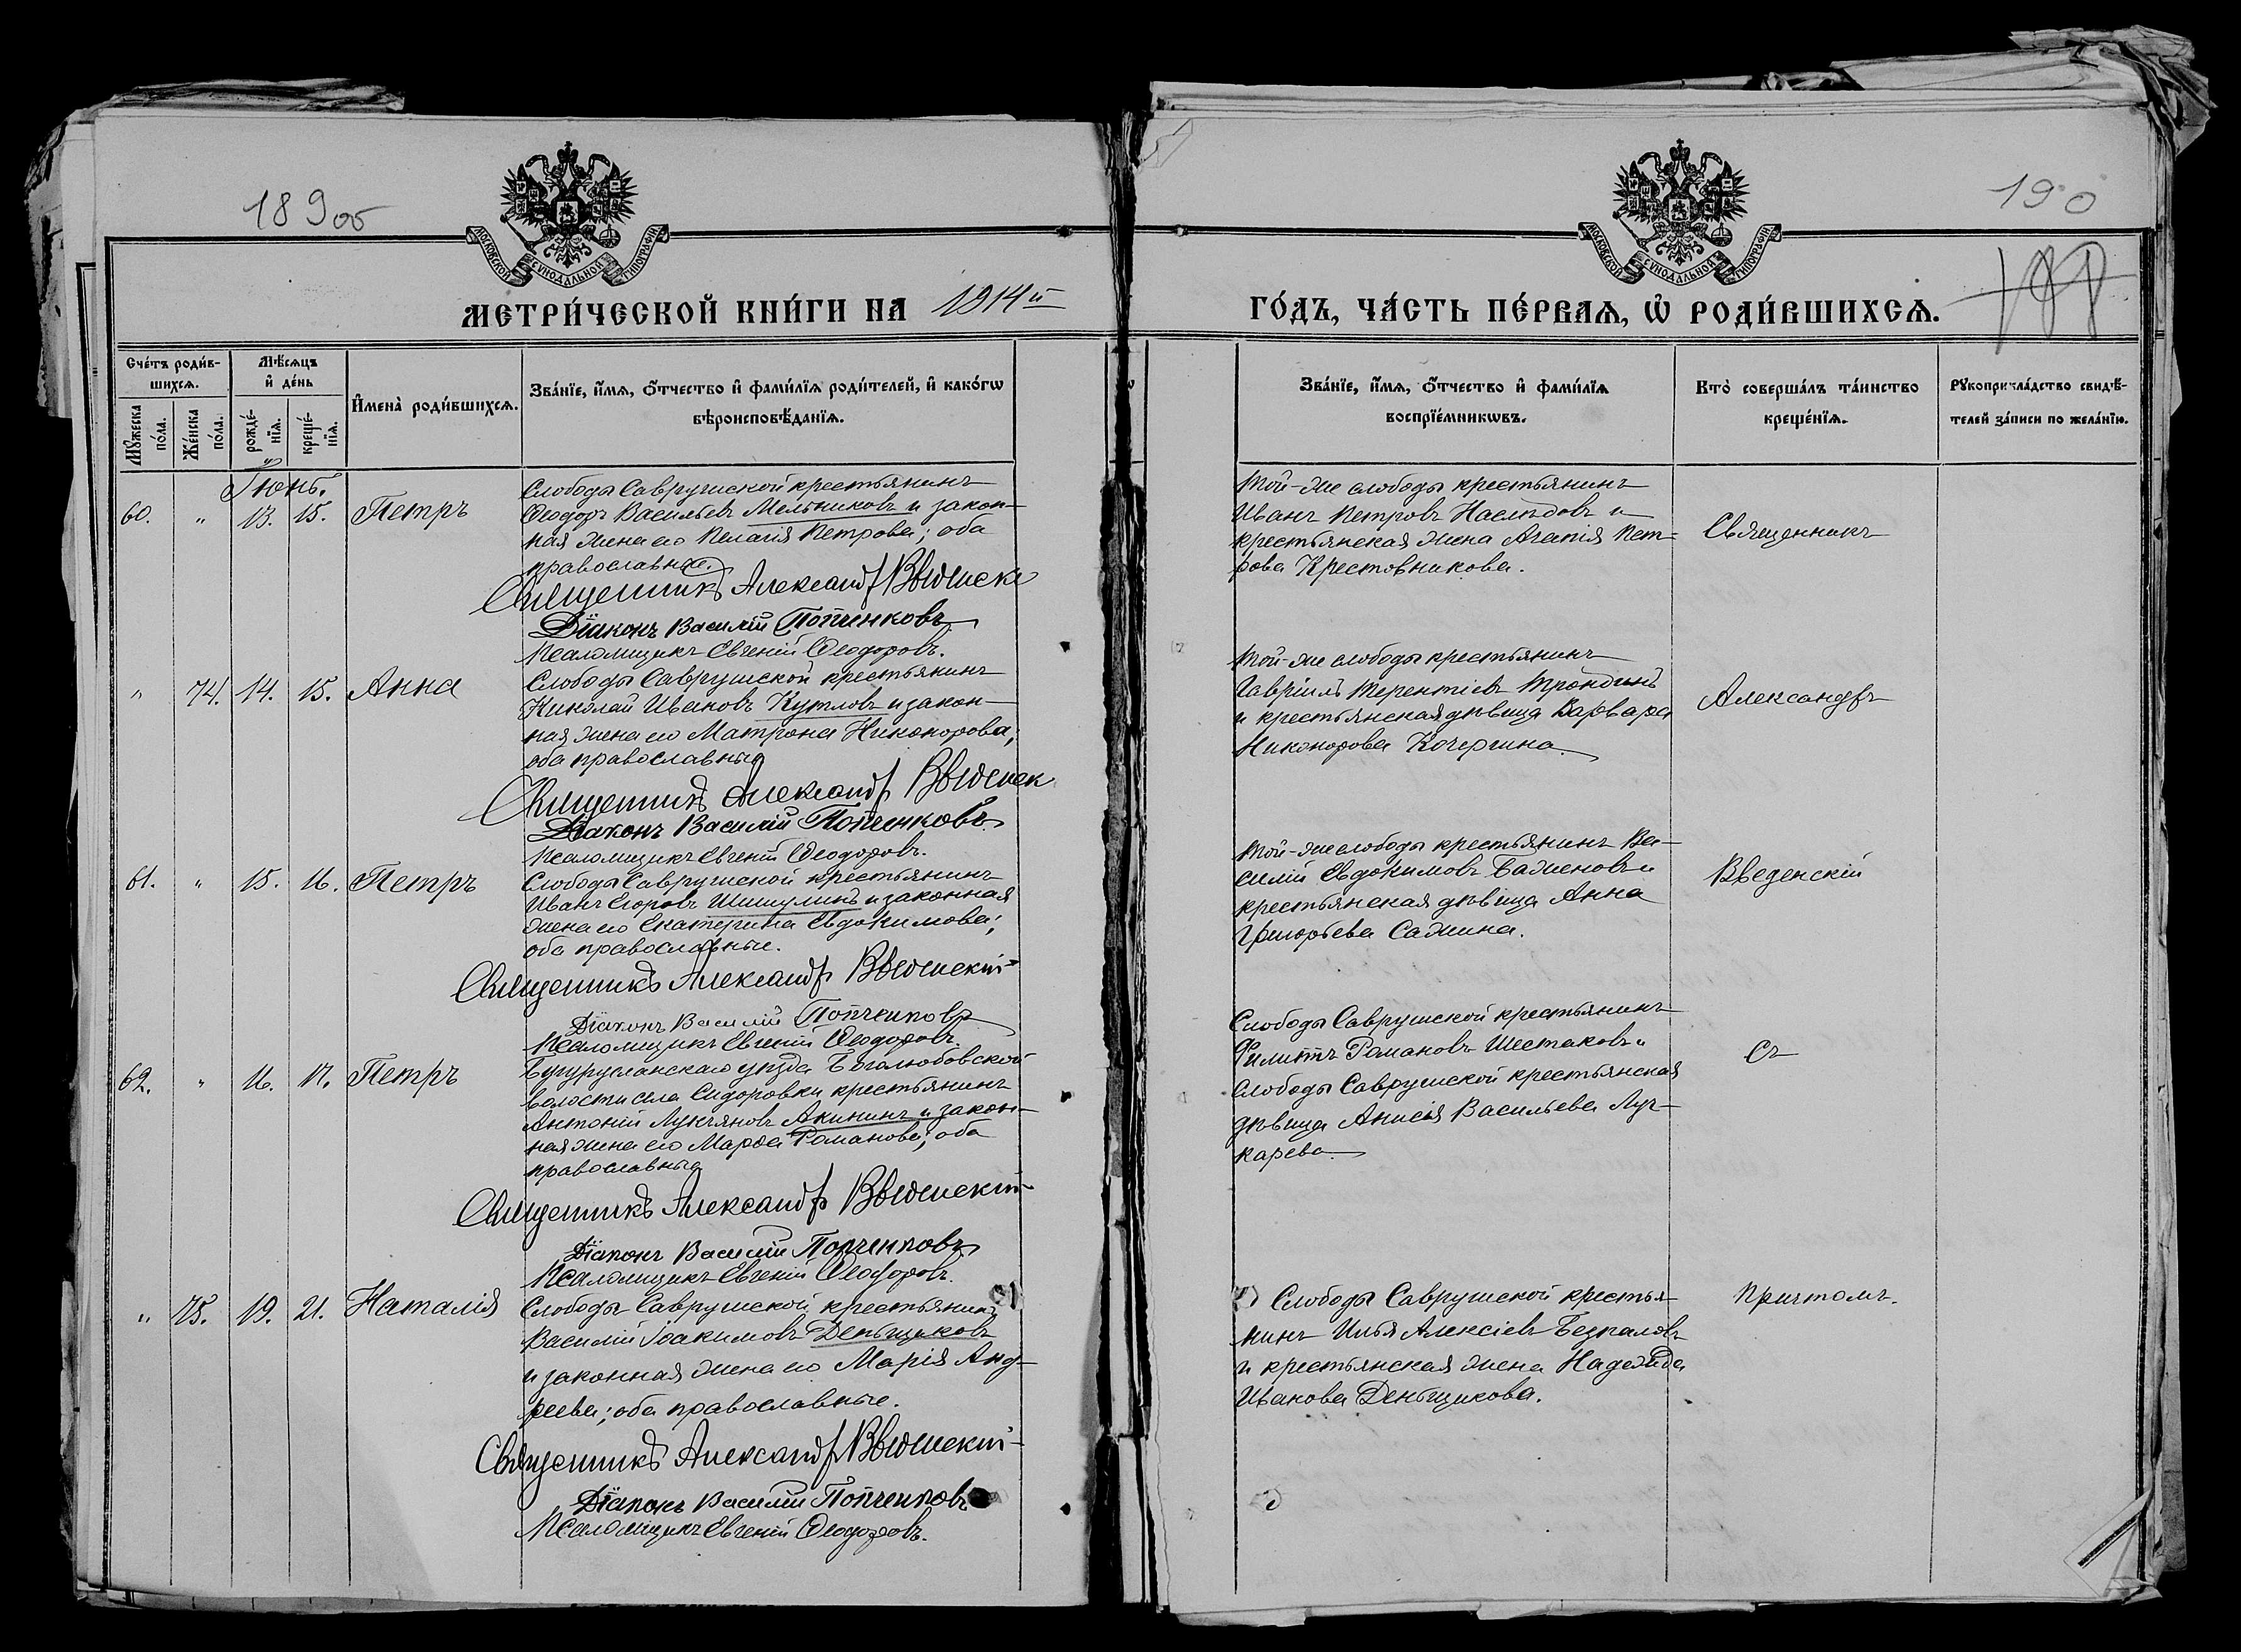 189об
190
МОСКОВСКОЙ СѴНОДАЛЬНОЙ ТИПОГРАФІИ
МОСКОВСКОЙ СѴНОДАЛЬНОЙ ТИПОГРАФІИ
МЕТРИ́ЧЕСКОЙ КНИ́ГИ НА 1914й
ГО́ДЪ, ЧА́СТЬ ПЕ́РВАѦ, Ѡ҆ РОДИ́ВШИХСѦ.
Сче́тъ роди́в-
шихсѧ.
Мꙋ́жеска по́ла.
Же́нска по́ла.
Мѣ́сѧцъ
и҆ де́нь
рожде́-
нїѧ.
креще́-
нїѧ.
И҆мена̀ роди́вшихсѧ.
Зва́нїе, и҆́мѧ, ѻ҆́тчество и҆ фами́лїѧ роди́телей, и҆ како́гѡ
вѣроисповѣ́данїѧ.
Зва́нїе, и҆́мѧ, ѻ҆́тчество и҆ фами́лїѧ
воспрїе́мникѡвъ.
Кто̀ соверша́лъ та́инство
креще́нїѧ.
Рꙋкоприкла́дство свидѣ́-
телей за́писи по жела́нїю.
Іюнь.
60. " 13. 15. Петръ
Слободы Саврушской крестьянинъ
Ѳеодоръ Васильевъ Мельниковъ и закон-
ная жена его Пелагія Петрова; оба
православные.
Священникъ Александръ Введенскі
Діаконъ Василій Попченковъ
Псаломщикъ Евгеній Ѳеодоровъ.
Той-же слободы крестьянинъ
Иванъ Петровъ Наслѣдовъ и
крестьянская жена Агапія Пет-
рова Крестовникова.
Священникъ
" 74. 14. 15. Анна
Слободы Саврушской крестьянинъ
Николай Ивановъ Кутловъ и закон-
ная жена его Матрона Никонорова;
оба православные
Священникъ Александръ Введенск
Діаконъ Василій Попченковъ
Псаломщикъ Евгеній Ѳеодоровъ.
Той-же слободы крестьянинъ
Гавріилъ Терентіевъ Трондинъ
и крестьянская дѣвица Варвара
Никонорова Кочергина.
Александръ
61. " 15. 16. Петръ
Слободы Саврушской крестьянинъ
Иванъ Егоровъ Шишулинъ и законная
жена его Екатерина Евдокимова;
оба православные.
Священникъ Александръ Введенскій
Діаконъ Василій Попченковъ
Псаломщикъ Евгеній Ѳеодоровъ.
Той-же слободы крестьянинъ Ва-
силій Евдокимовъ Баженовъ и
крестьянская дѣвица Анна
Григорьева Сажина.
Введенскій
62. " 16. 17. Петръ
Бугурусланскаго уѣзда Боголюбовской
волости села Сидоровки крестьянинъ
Антоній Лукіяновъ Акининъ и закон-
ная жена его Марѳа Романова; оба
православные
Священникъ Александръ Введенскій
Діаконъ Василій Попченковъ
Псаломщикъ Евгеній Ѳеодоровъ.
Слободы Саврушской крестьянинъ
Филиппъ Романовъ Шестаковъ и
Слободы Саврушской крестьянская
дѣвица Анисія Васильева Луч-
карева
съ
" 75. 19. 21. Наталія
Слободы Саврушской крестьянинъ
Василій Іоакимовъ Деньщиковъ
и законная жена его Марія Анд-
реева; оба православные.
Священникъ Александръ Введенскій
Діаконъ Василій Попченковъ
Псаломщикъ Евгеній Ѳеодоровъ.
Слободы Саврушской крестья-
нинъ Илья Алексіевъ Безпаловъ
и крестьянская жена Надежда
Иванова Деньщикова.
Причтомъ.